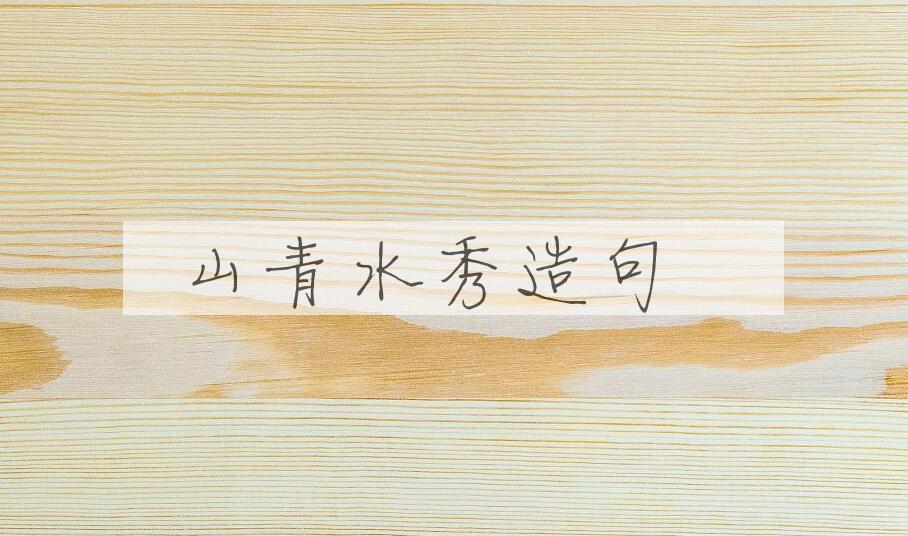 山青水秀造句